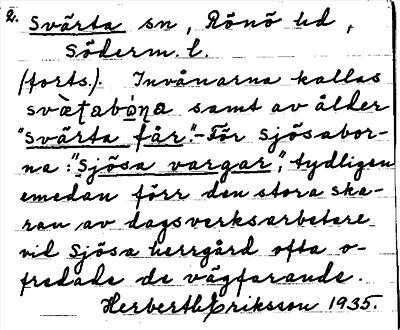 2. Svärta sn, Rönö hd,
Söderm. l.
(forts.). Invånarna kallas
svæ̀ʈabo̱ṇa samt av ålder
"Svärta får".- För Sjösabor-
na: "Sjösa vargar", tydligen
emedan förr den stora ska-
ran av dagsverksarbetare
vid Sjösa herrgård ofta o-
fredade de vägfarande.
Herberth Eriksson 1935.